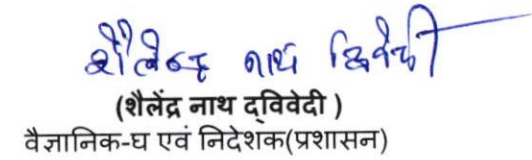 शैलेन्द्र नाथ द्विवेदी
(शैलेंद्र नाथ द्विवेदी )
वैज्ञानिक-घ एवं निदेशक(प्रशासन)